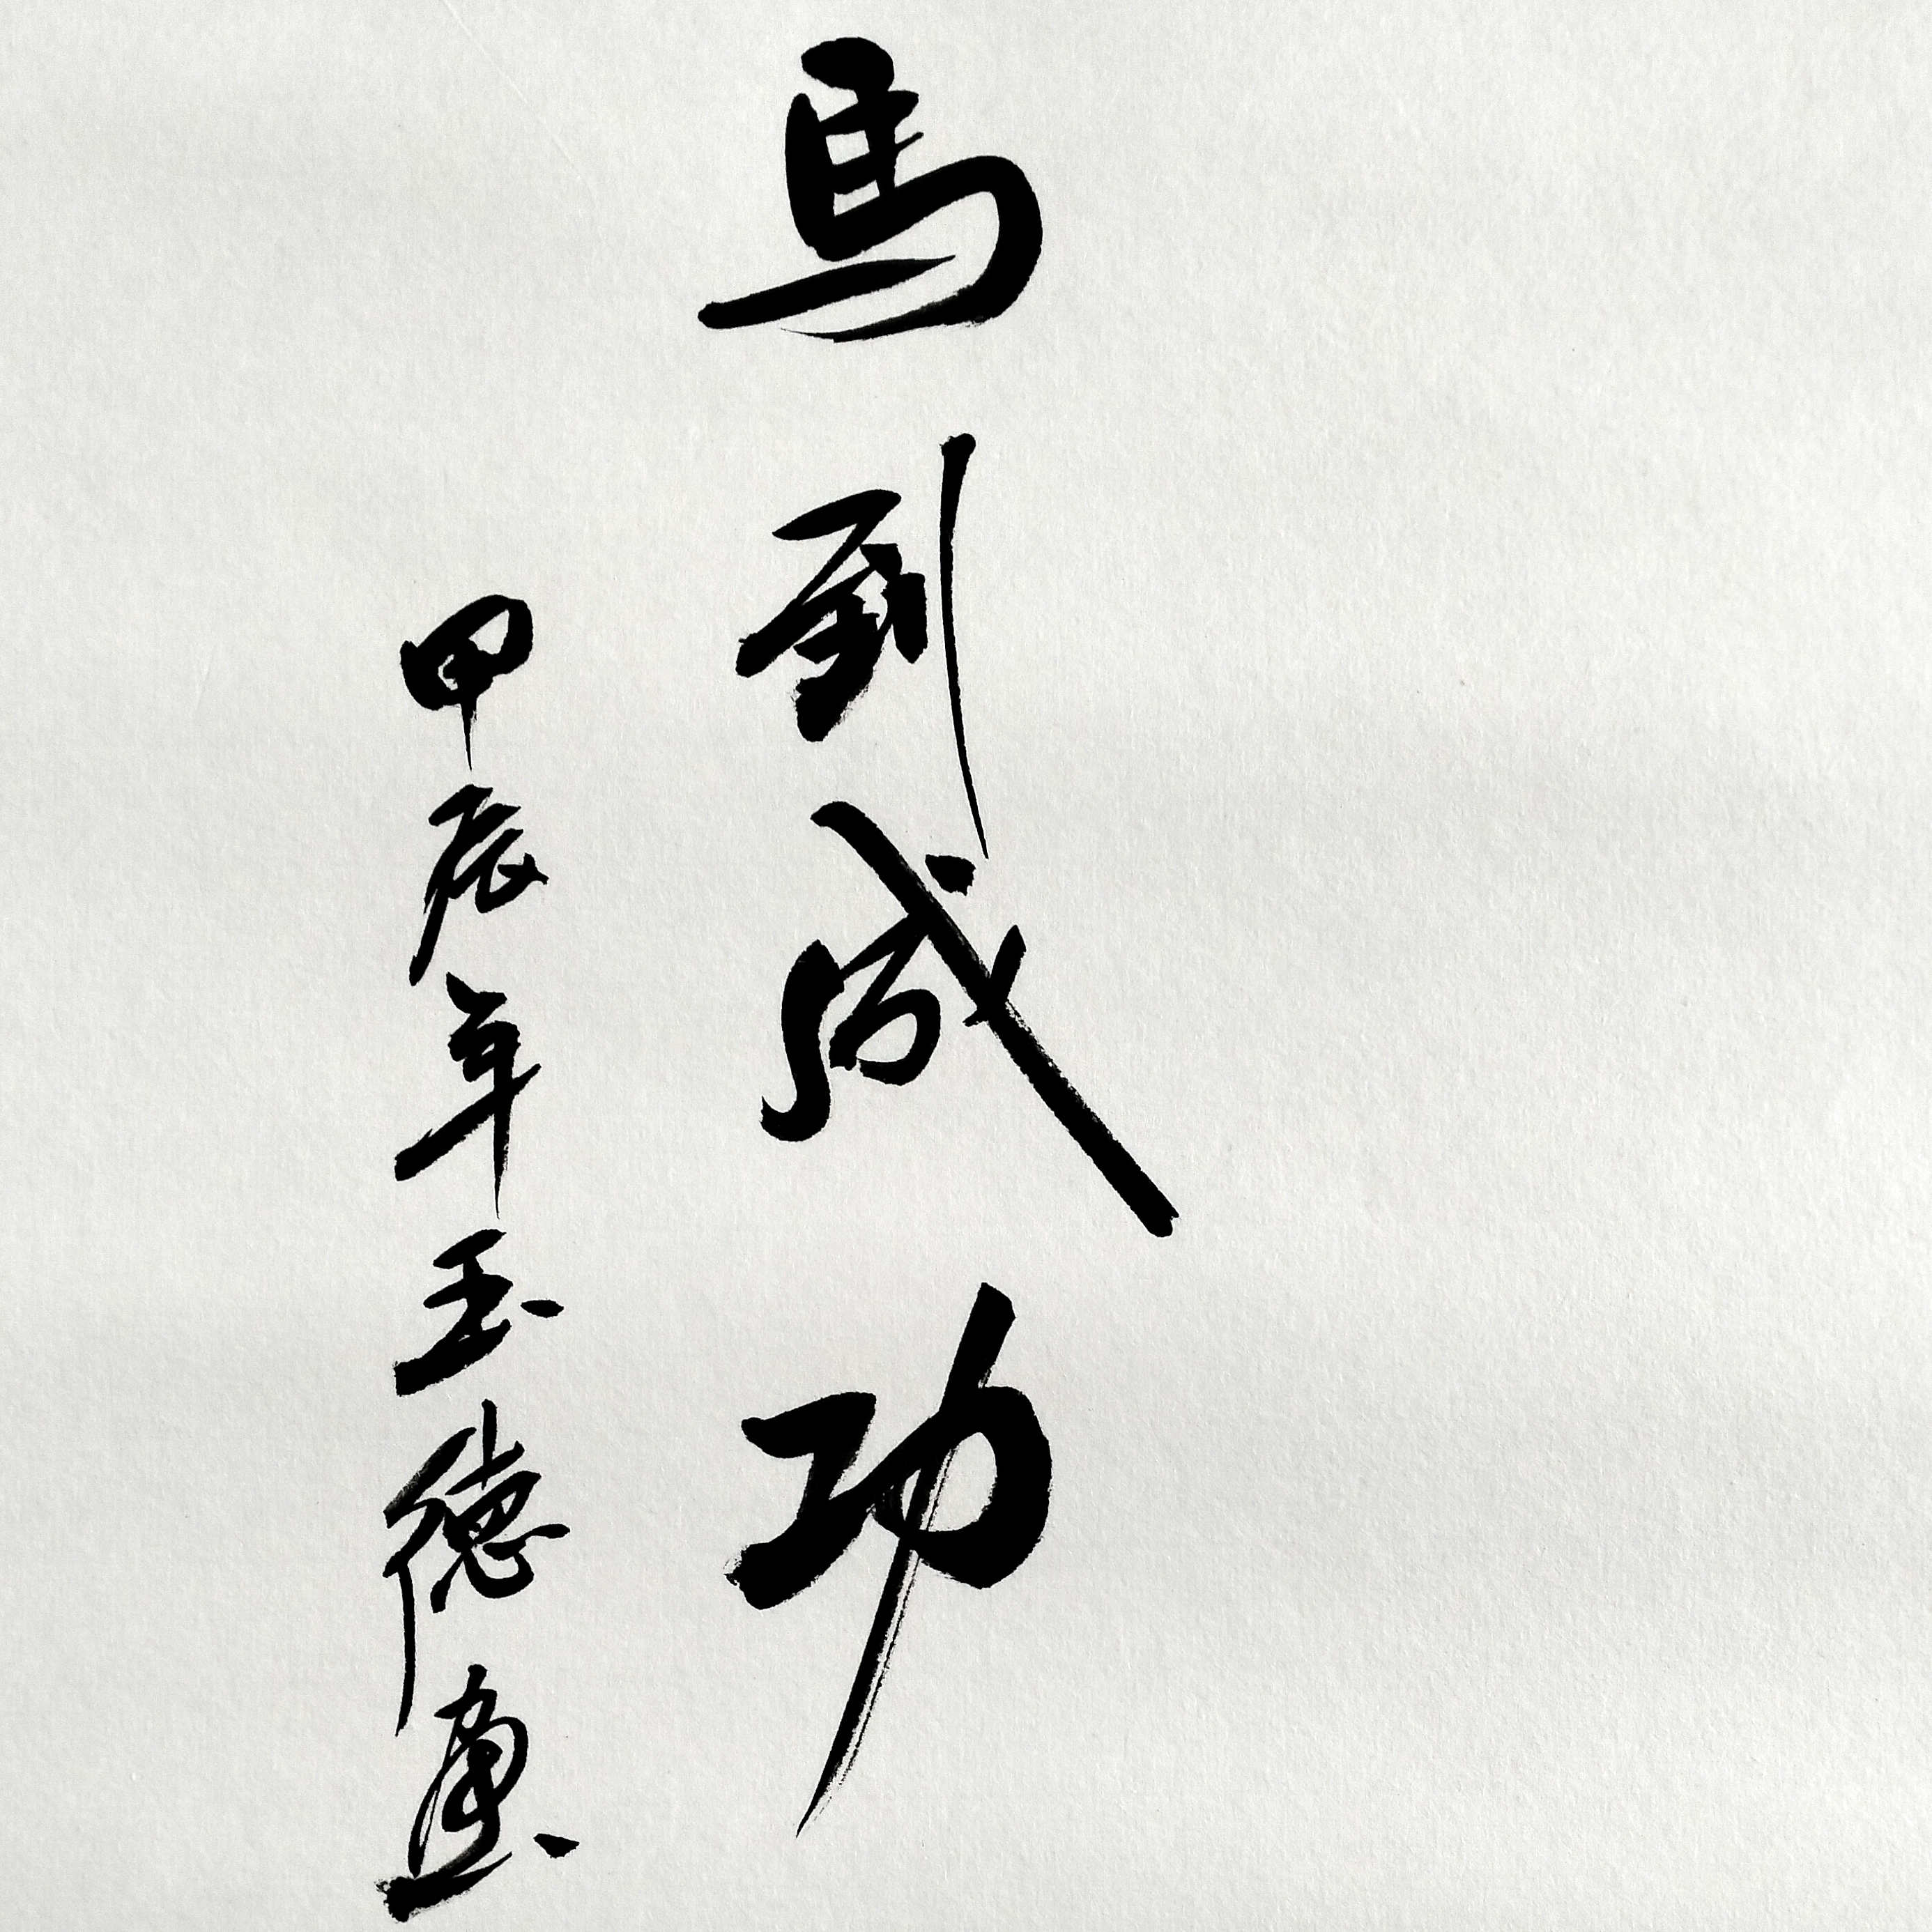 馬到成功
甲辰年玉德書